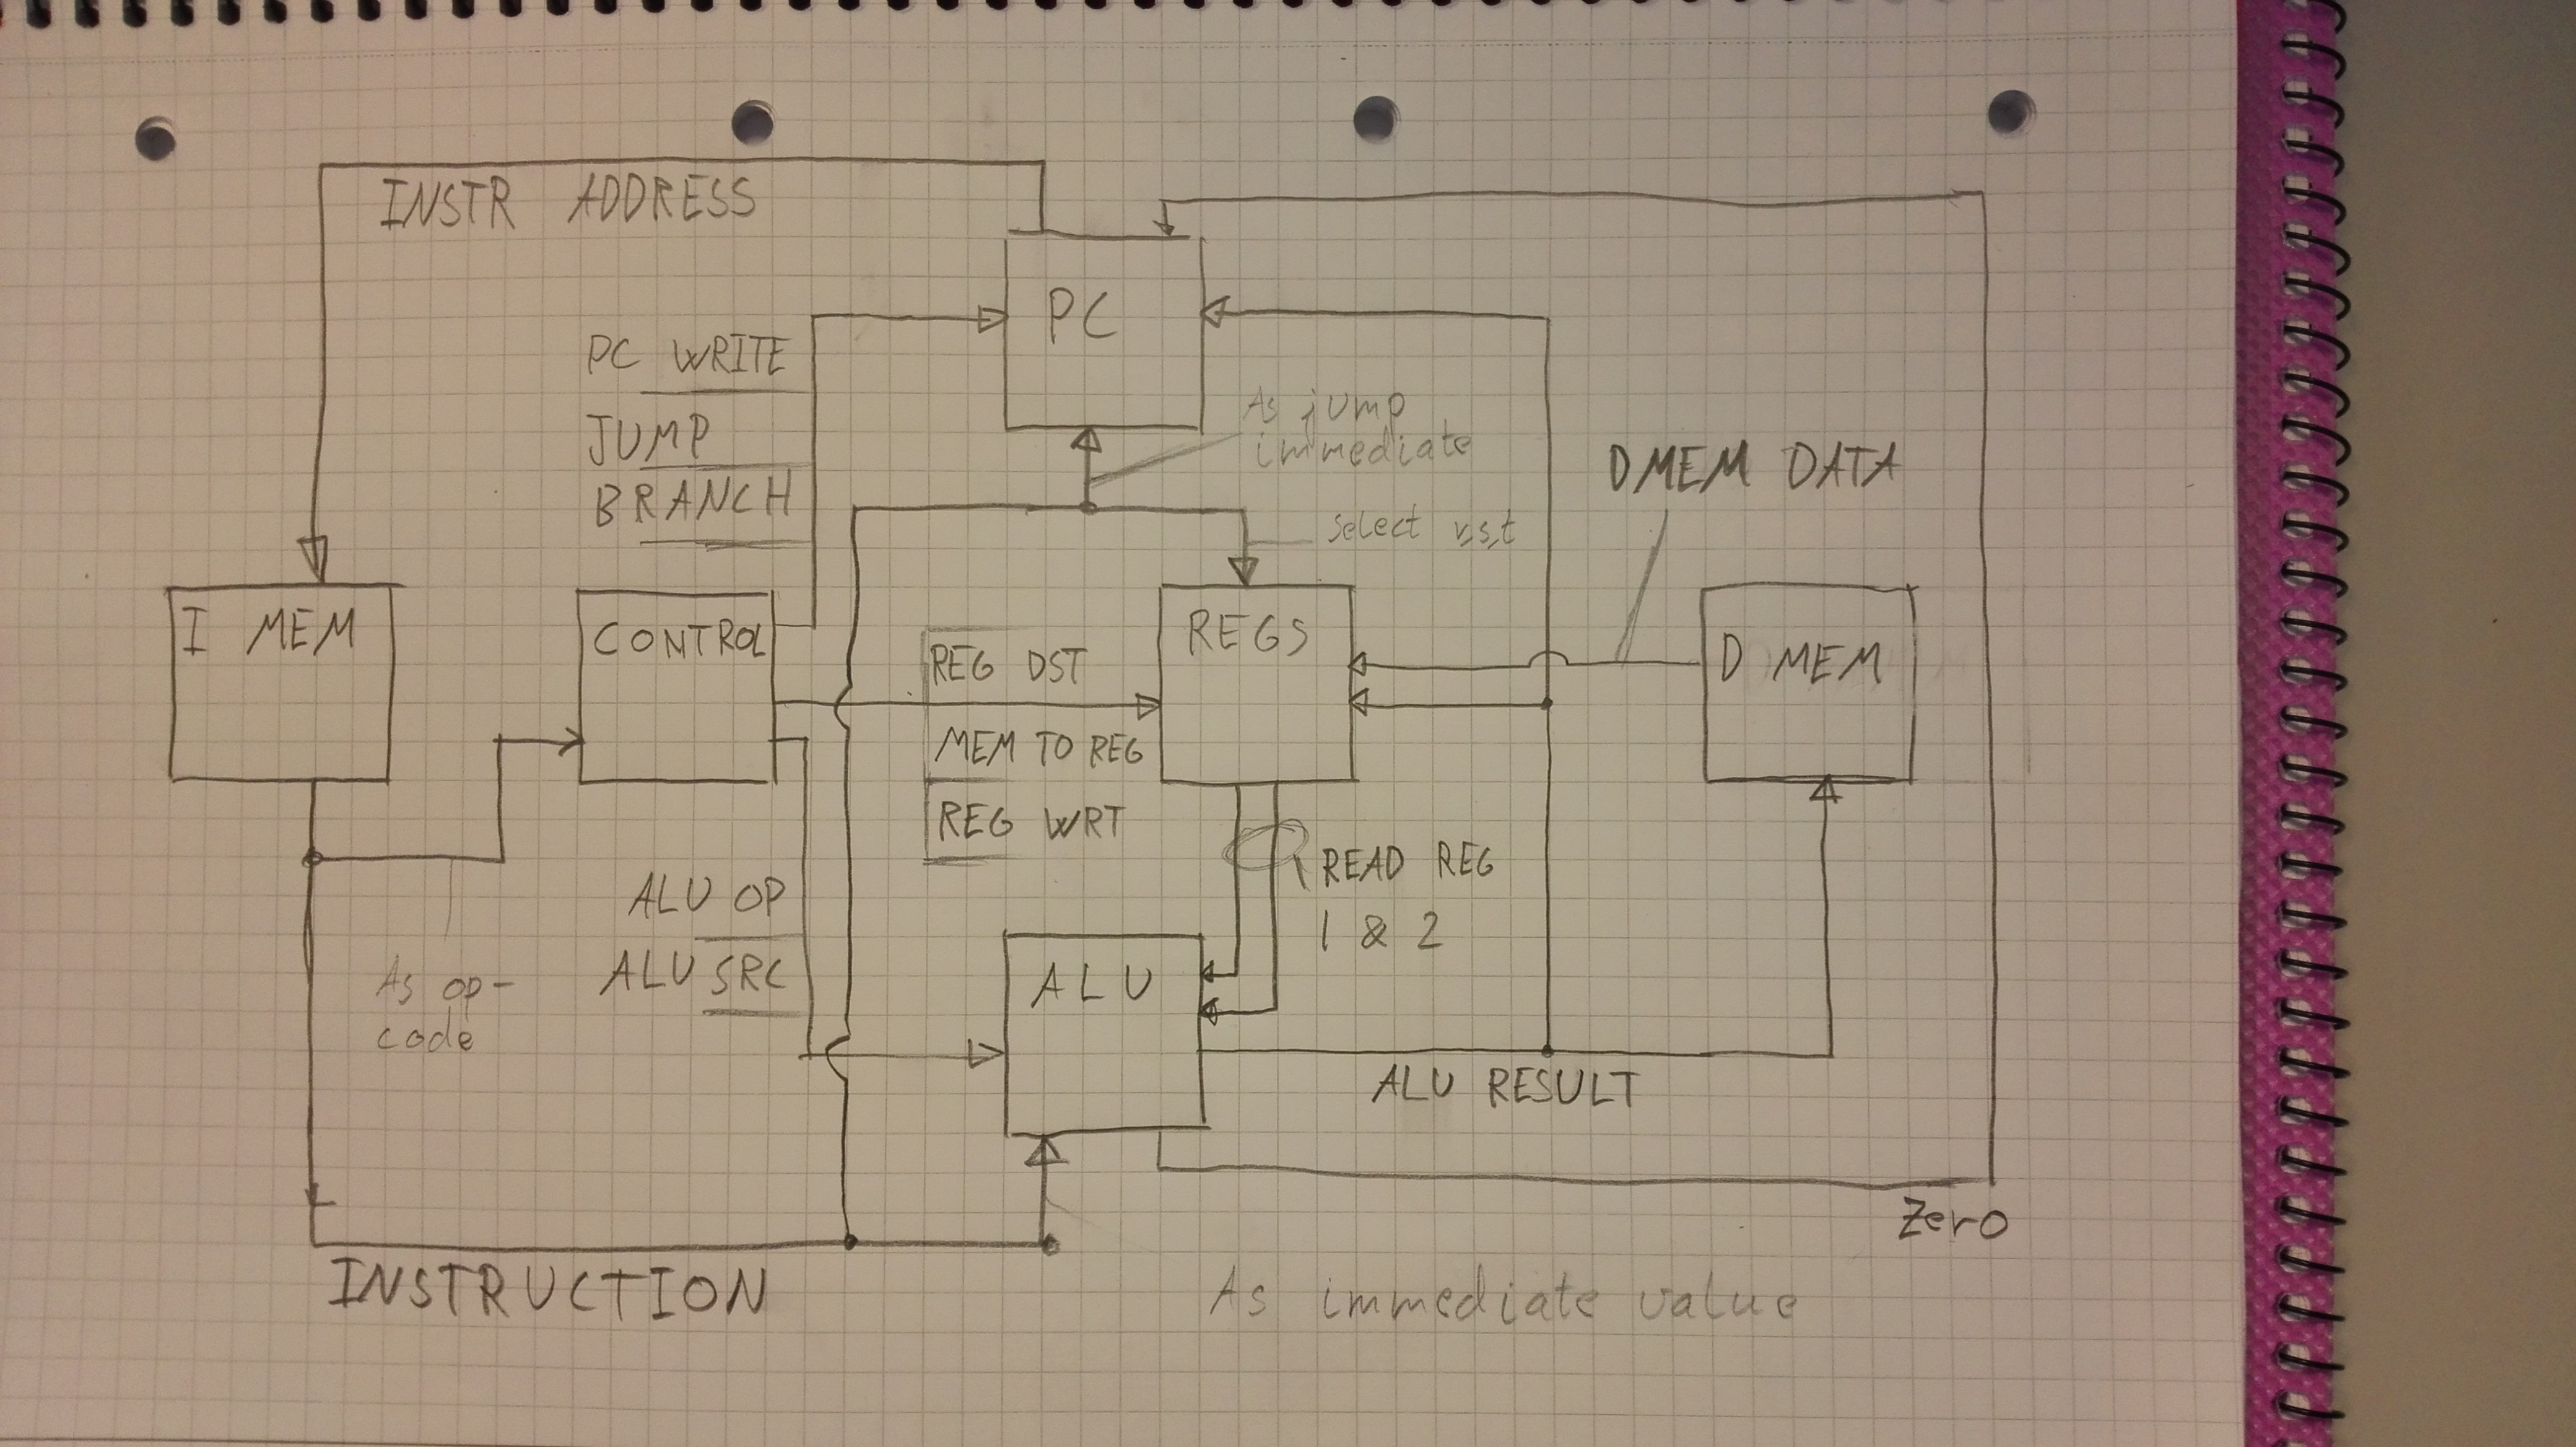 INSTR ADDRESS
PC
PC WRITE
JUMP
BRANCH
As jump
immediate
DMEM DATA
Select r,s,t
I MEM
CONTROL
REGS
D MEM
REG DST
MEM TO REG
REG WRT
READ REG
1 & 2
ALU OP
ALU SRC
ALU
As op-
code
ALU RESULT
Zero
INSTRUCTION
As immediate value